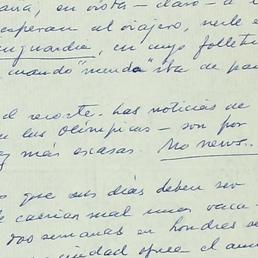 en vista - claro - a
esperan al viajero,
anguardia, en cuyo follet
cuando "menda" iba de pa
el recorte. Las noticias de
las Olímpicas - son por
más escasas. No news..
que sus días deben ser
caerían mal unas vaca
dos semanas en Londres se
ciudad ofrece el